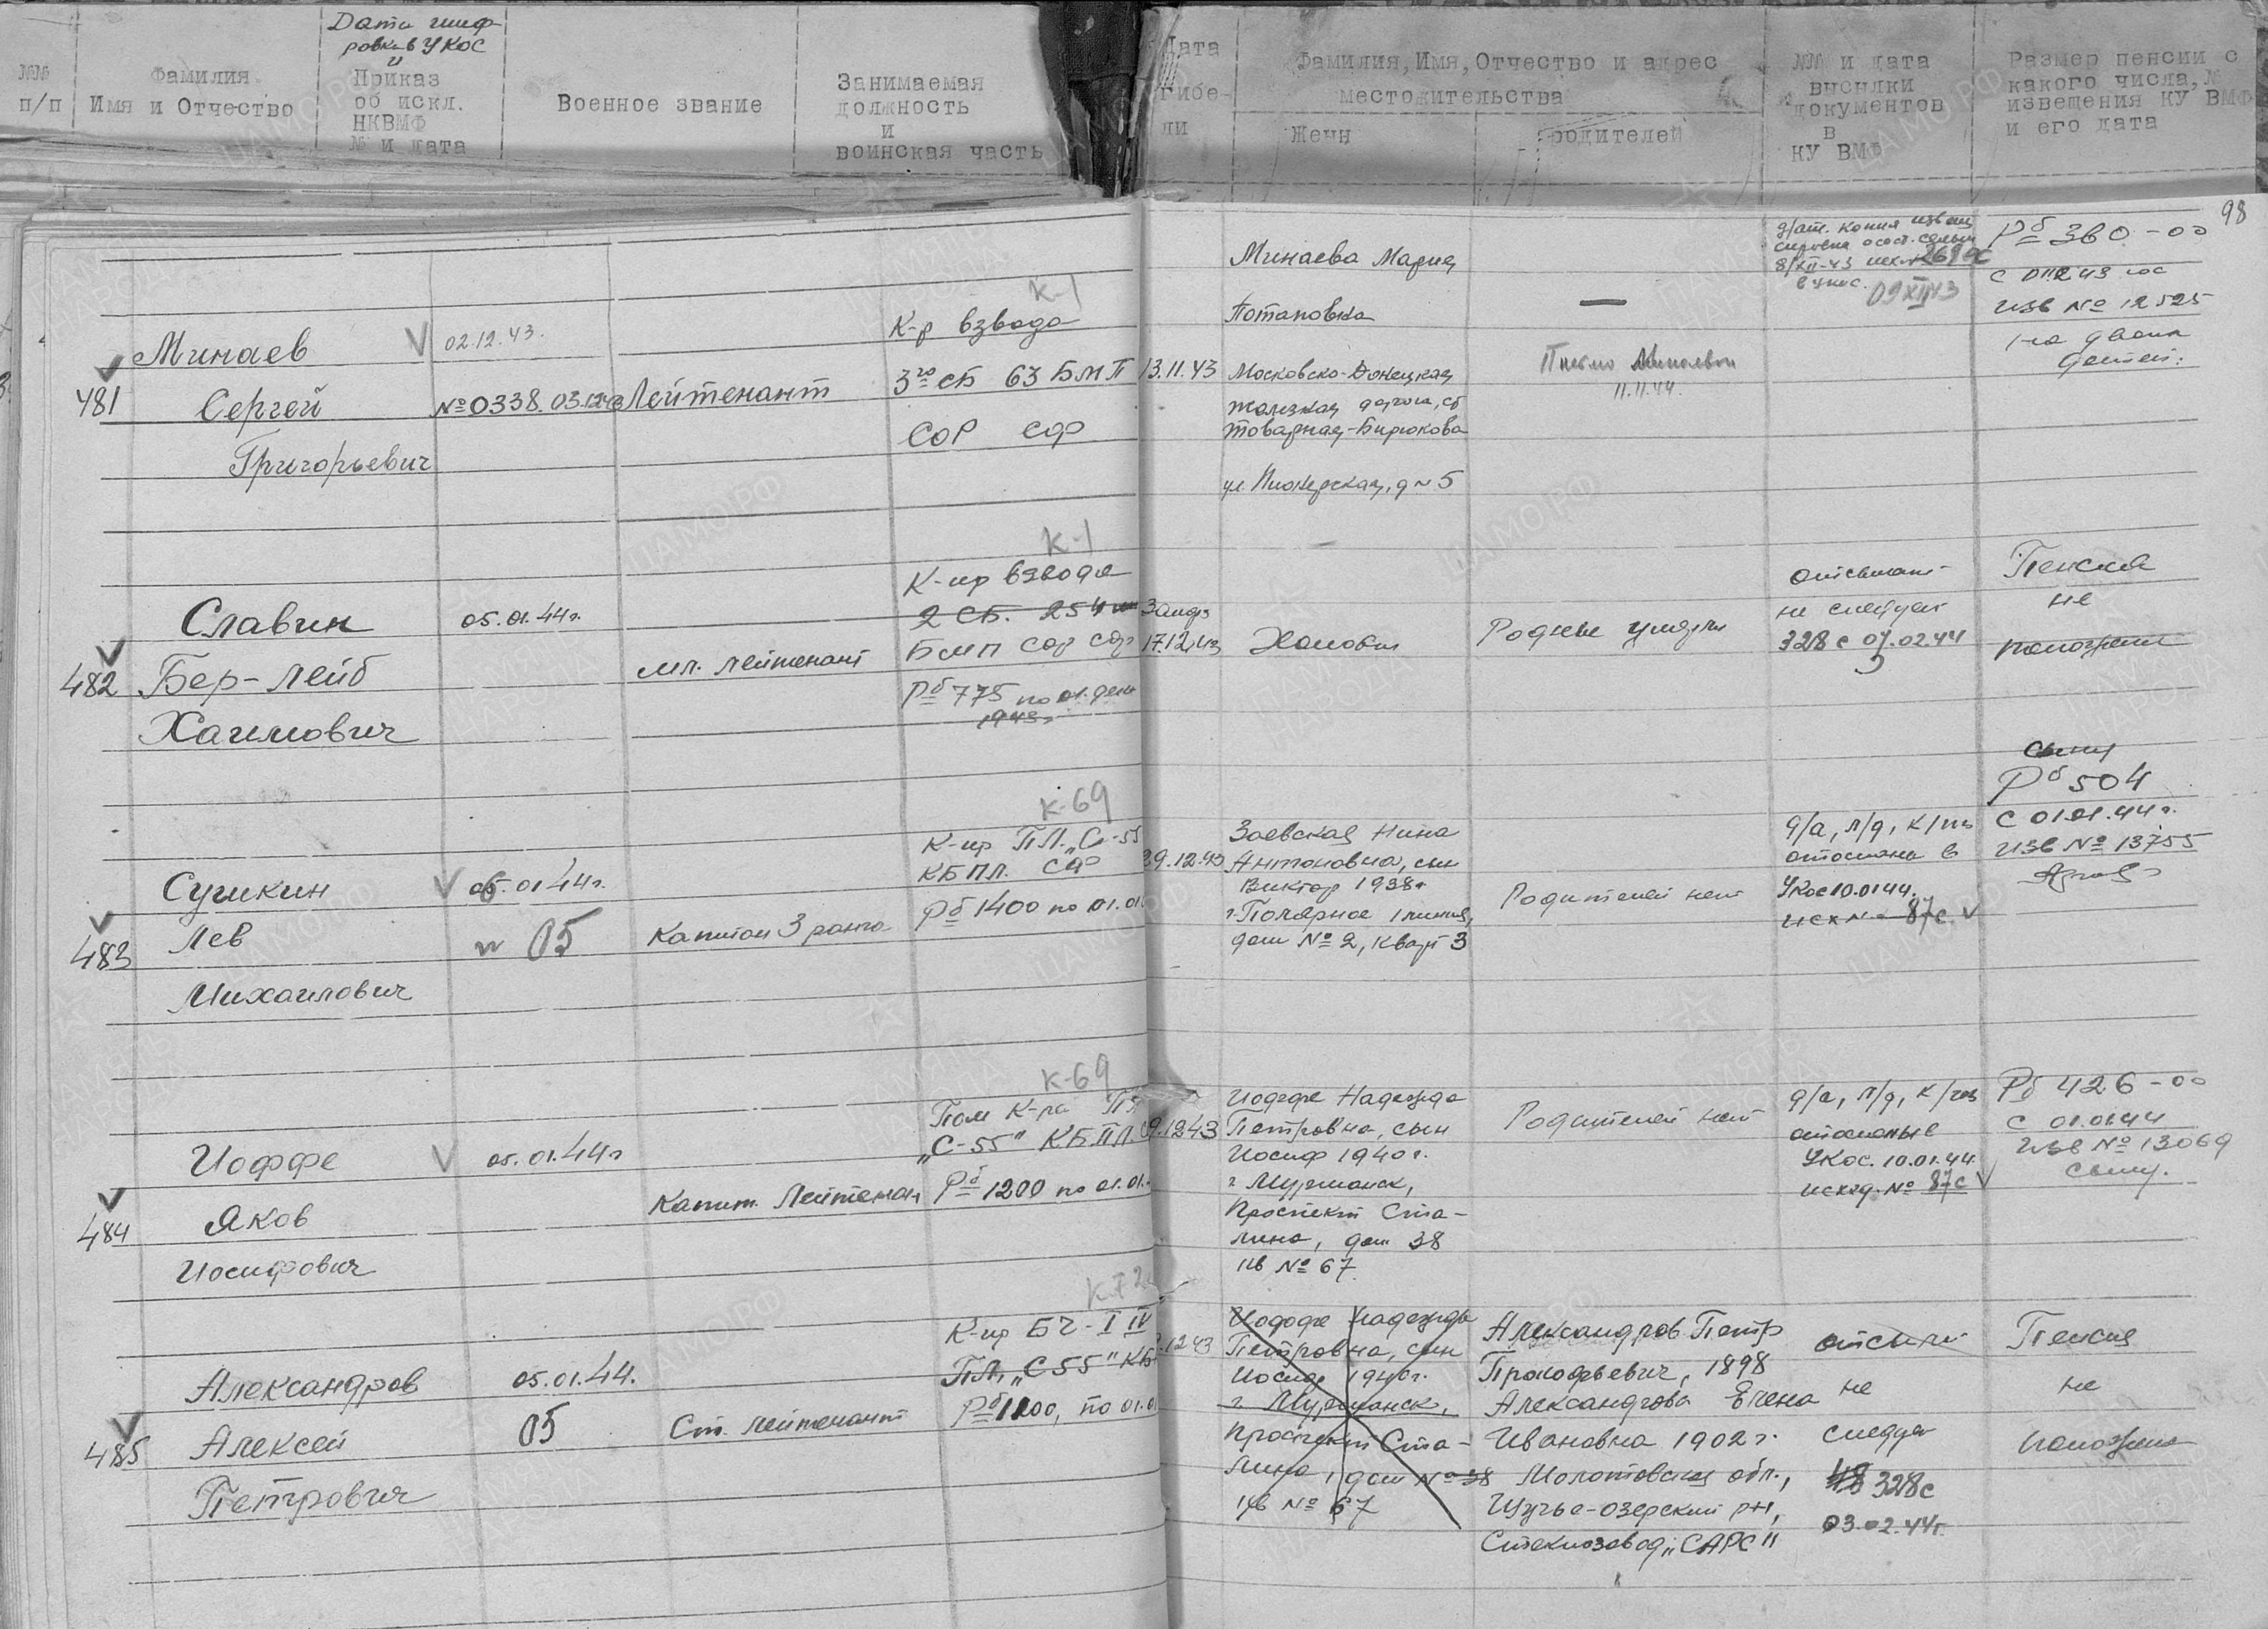 Дата шиф-
ровки в УКОС
и
№№
п/п
Фамилия
Имя и Отчество
Приказ
об искл.
НКВМФ
№ и дата
Военное звание
Занимаемая
должность
и
воинская часть
Дата
гибе-
ли
Фамилия, Имя, Отчество и адрес
местожительства
Жены
родителей
№№ и дата
высылки
документов
в
КУ ВМФ
Размер пенсии с
какого числа, №
извещения КУ ВМФ
и его дата
98
481
Минаев
Сергей
Григорьевич
02.12.43.
№ 0338. 03.12.43
Лейтенант
К-1
К-р взвода
3го СБ 63 БМП
СОР СФ
13.11.43
Минаева Мария
Потаповна
Московско-Донецкая
железная дорога, ст
Товарная-Бирюкова
ул. Пионерская, д № 5
—
Письмо Минаевой
11.11.44.
д/ат. копия извещ
справка о сост. семьи
8/XII-43
09 XII 43
Рб 360-00
изв № 12525
на двоих
детей.
482
Славин
Бер-Лейб
Хаимович
05.01.44г.
мл. лейтенант
К-1
К-ир взвода
2 СБ. 254
БМП СОР СФ
Рб 775 по 01.
1943г
17.12.43
Холост
Родные умерли
отсылать
не следует
328с 07.02.44
Пенсия
не
положена
483
Сушкин
Лев
Михайлович
05.01.44г.
№ 05
Капитан 3 ранга
К-69
К-ир ПЛ „С-55
КБПЛ. СФ
Рб 1400 по 01.01
29.12.43
Заевская Нина
Антоновна, сын
Виктор 1938г
г. Полярное 1 линия,
дом № 2, кварт 3
Родителей нет
д/а, л/д, к/
отослана в
Укос 10.01.44.
исх № 87с
сыну
Рб 504
с 01.01.44г.
изв № 13755
484
Иоффе
Яков
Иосифович
05.01.44г
Капит. Лейтенан
К-69
Пом К-ра ПЛ
„С-55" КБПЛ.
Рб 1200 по 01.01.
9.12.43
Иоффе Надежда
Петровна, сын
Иосиф 1940г.
г Мурманск,
Проспект Ста-
лина, дом 38
кв № 67
Родителей нет
д/а, л/д, к/
отосланы в
Укос. 10.01.44.
исход. № 87с
Рб 426-00
с 01.01.44
Изв № 13069
сыну.
485
Александров
Алексей
Петрович
05.01.44.
05
Ст. лейтенант
К-ир БЧ-I IV
ПЛ „С55" КБ
Рб 1100, по 01.0
12 43
Иоффе Надежда
Петровна, сын
Иосиф 1940г.
г Мурманск,
Проспект Ста-
лина, дом № 38
кв № 67
Александров Петр
Прокофьевич, 1898
Александрова Елена
Ивановна 1902г.
Молотовская обл.,
Щучье-озерский р-н,
Стеклозавод „САРС"
отсылат
не
следует
328с
03.02.44г.
Пенсия
не
положена